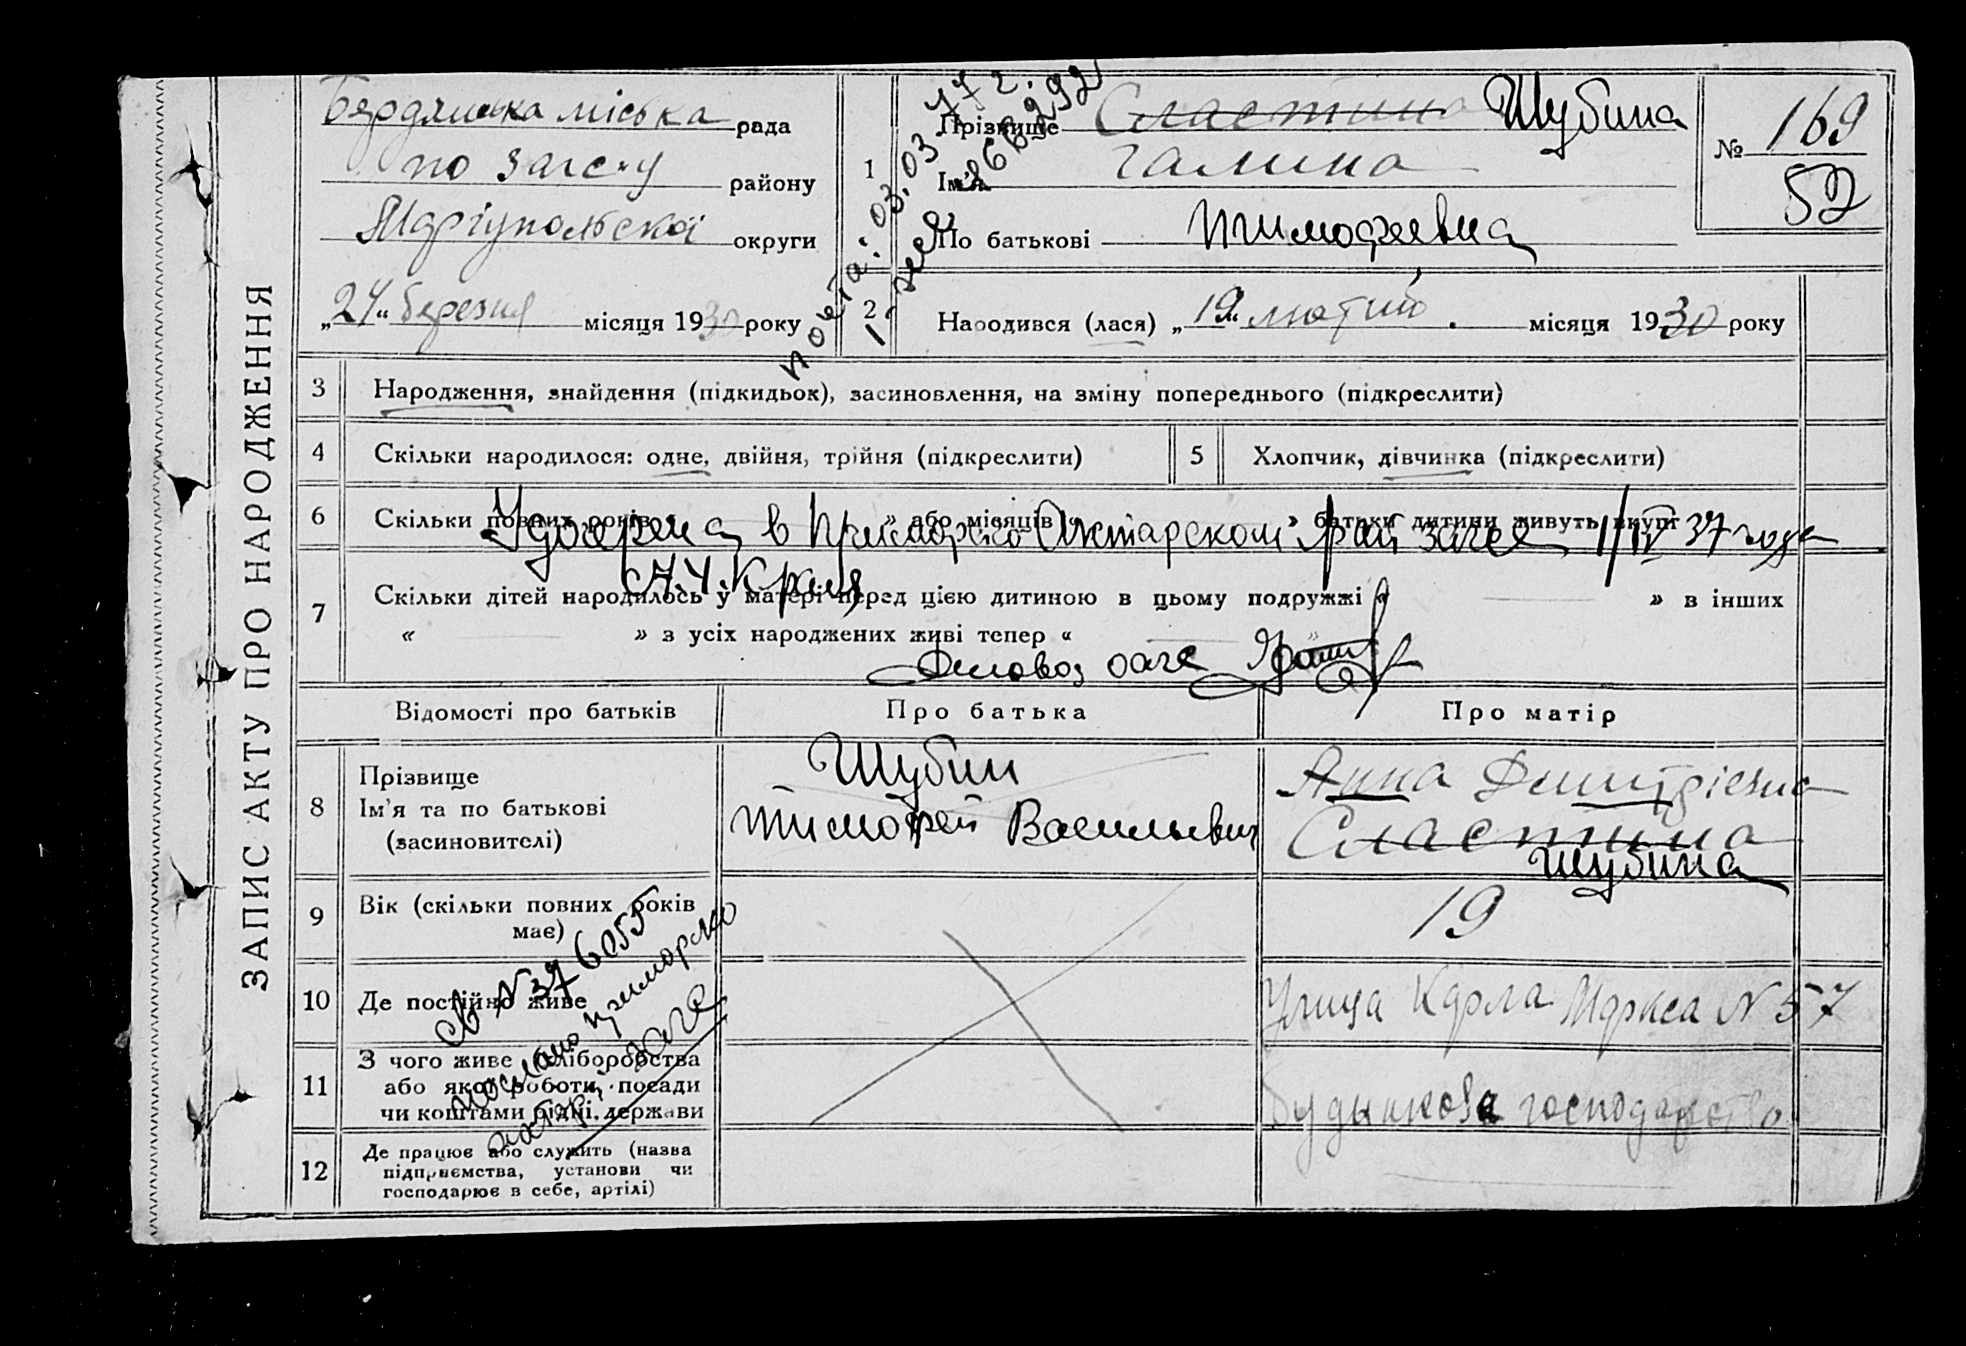 ЗАПИС АКТУ ПРО НАРОДЖЕННЯ
Бердянська міська рада
по загсу району
Маріупольскої округи
„24“ березня місяця 1930 року
1
Прізвище Сластина Шубина
Ім'я Галина
По батькові Тимофеевна
№ 169
52
2
Народився (лася) „19“ лютий місяця 1930 року
3 Народження, знайдення (підкидьок), засиновлення, на зміну попереднього (підкреслити)
4 Скільки народилося: одне, двійня, трійня (підкреслити)
5 Хлопчик, дівчинка (підкреслити)
6 Скільки повних років « » або місяців « » батьки дитини живуть вкупі
Удочерена в Приморско Ахтарском Рай загсе 11/IV 37 года
А.Ч. Края
7 Скільки дітей народилось у матері перед цією дитиною в цьому подружжі « » в інших
« » з усіх народжених живі тепер « »
Деловод загс
Відомості про батьків
Про батька
Про матір
8 Прізвище
Ім'я та по батькові
(засиновителі)
Шубин
Тимофей Васильевич
Анна Дмитріевна
Сластина
Шубина
9 Вік (скільки повних років
має)
19
10 Де постійно живе
Улица Карла Маркса N 57
11 З чого живе хліборобства
або якої роботи, посади
чи коштами рідні, держави
будинкове господарство
12 Де працює або служить (назва
підприємства, установи чи
господарює в себе, артілі)
св N 376055
послано Приморско
Ахтар. загс